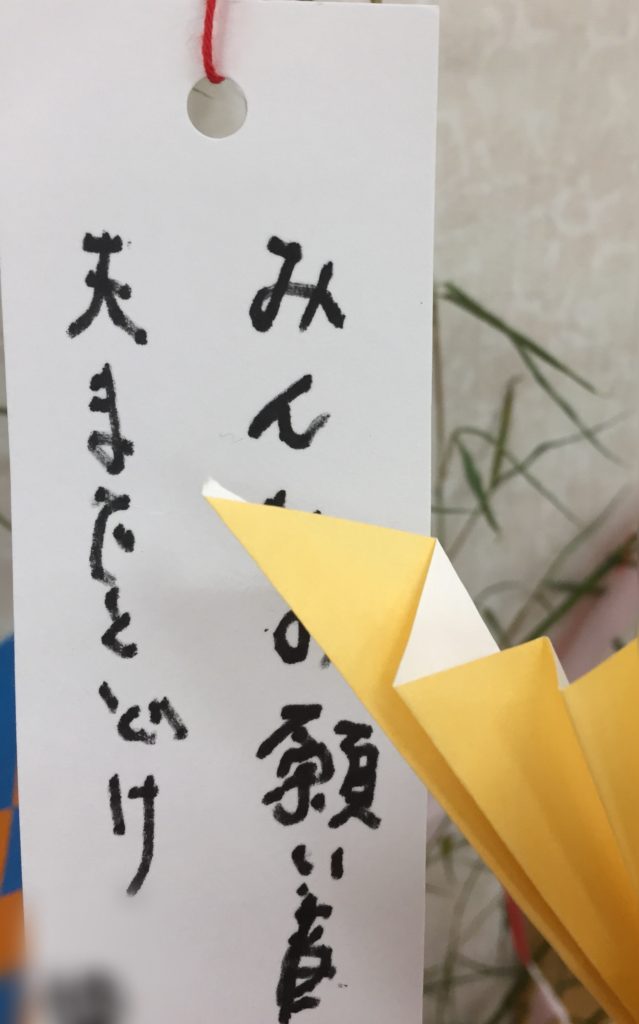 みんなの願い
天までとどけ